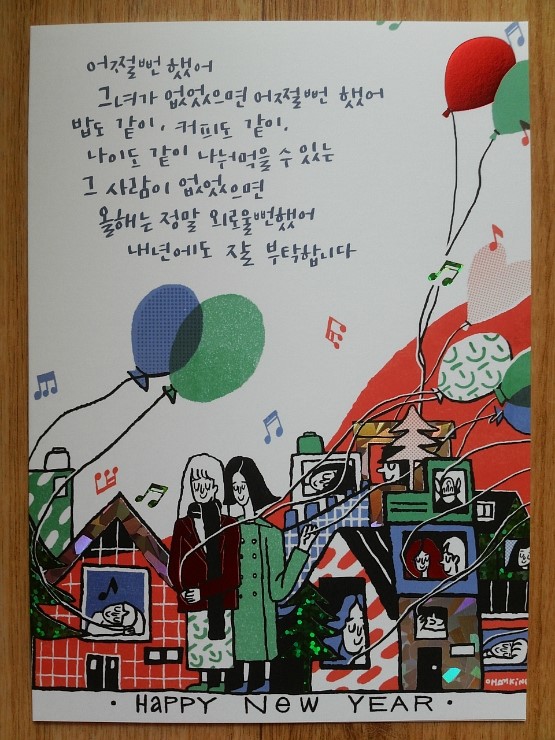 어쩔뻔 했어
그녀가 없었으면 어쩔뻔 했어
밥도 같이, 커피도 같이,
나이도 같이 나눠먹을 수 있는
그 사람이 없었으면
올해는 정말 외로울뻔했어
내년에도 잘 부탁합니다
· HAPPY NEW YEAR ·